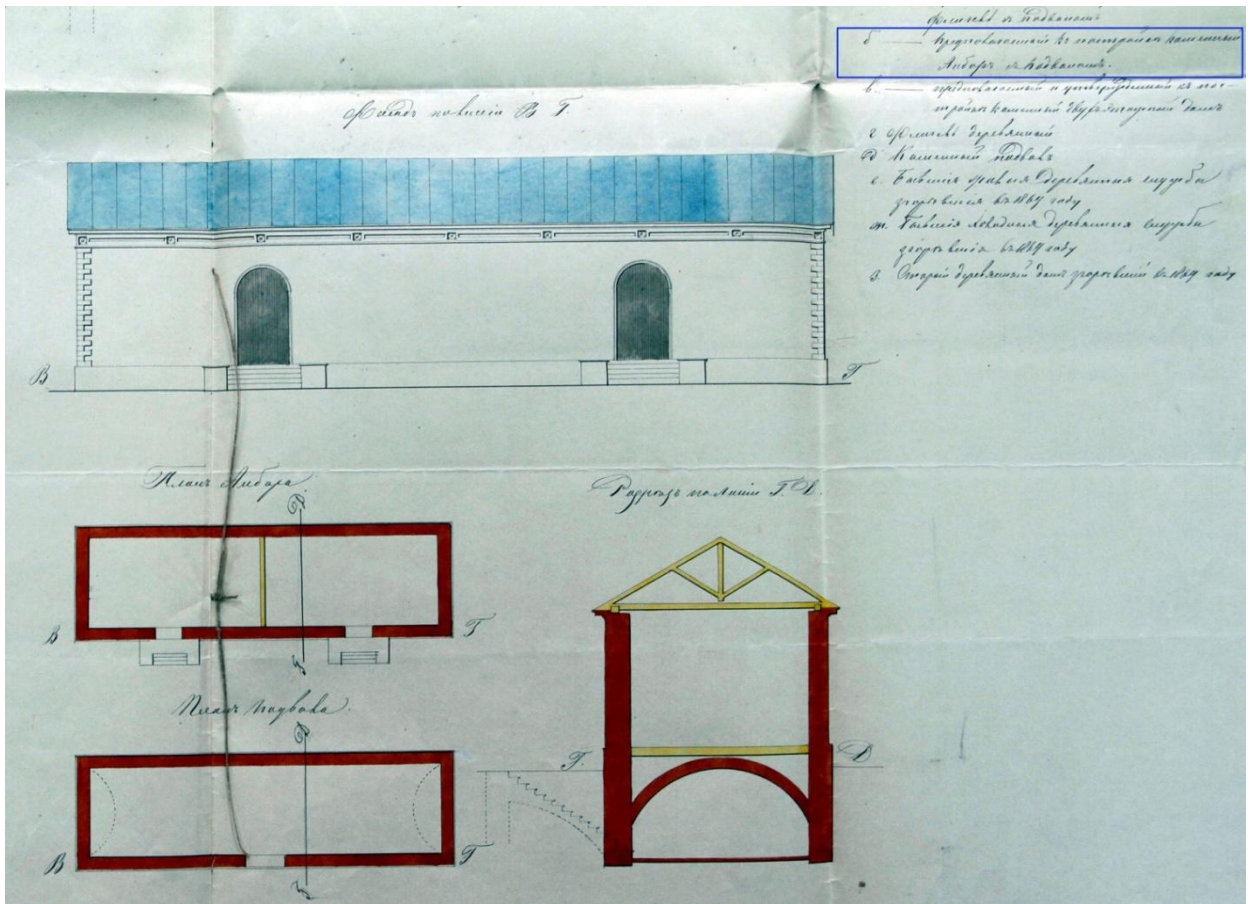 флигель с подвалом
б — предполагаемый къ постройке каменный
Амбаръ съ подваломъ.
в — предполагаемый и утвержденный къ пос-
тройке каменный двухъ-этажный домъ
г Флигель деревянный
д Каменный Подвалъ
е. Бывшия правыя деревянныя службы
згоревшия въ 1869 году
ж. Бывшия деревянныя службы
згоревшия въ 1869 году
з. Старый деревянный домъ згоревший въ 1869 году
Фасадъ по линіи В Г.
В
Г
Планъ Амбара
Д
В
Г
Г
Разрезъ по линіи Г. Д.
Г.
Д
Планъ подвала.
Д
В
Г
Г